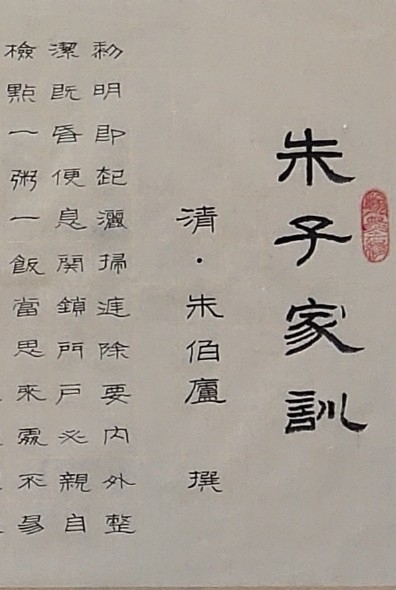 朱子家訓
清·朱伯廬 撰
黎明即起灑掃庭除要內外整
潔既昏便息關鎖門戶必親自
檢點一粥一飯當思來處不易